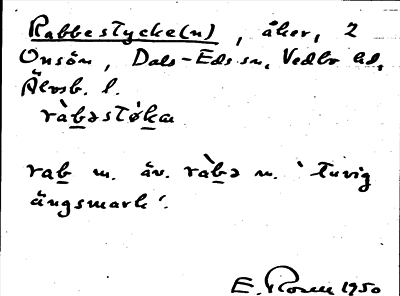 Rabbestycke(n), åker, 2
Onsön, Dals-Eds sn, Vedbo hd,
Älvsb. l.
ràbəstøka
rab m. äv. ràbə n. 'tuvig
ängsmark'.
E. Rosen 1950